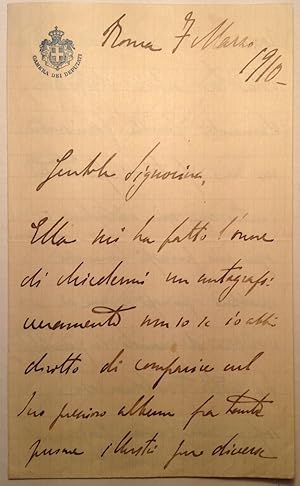 CAMERA DEI DEPUTATI
Roma 7 Marzo
1910-
Gentile Signorina,
Ella mi ha fatto l'onore
di chiedermi un autografo:
veramente non so se io abbia
diritto di comparire nel
suo prezioso album fra tante
persone illustri per diverse